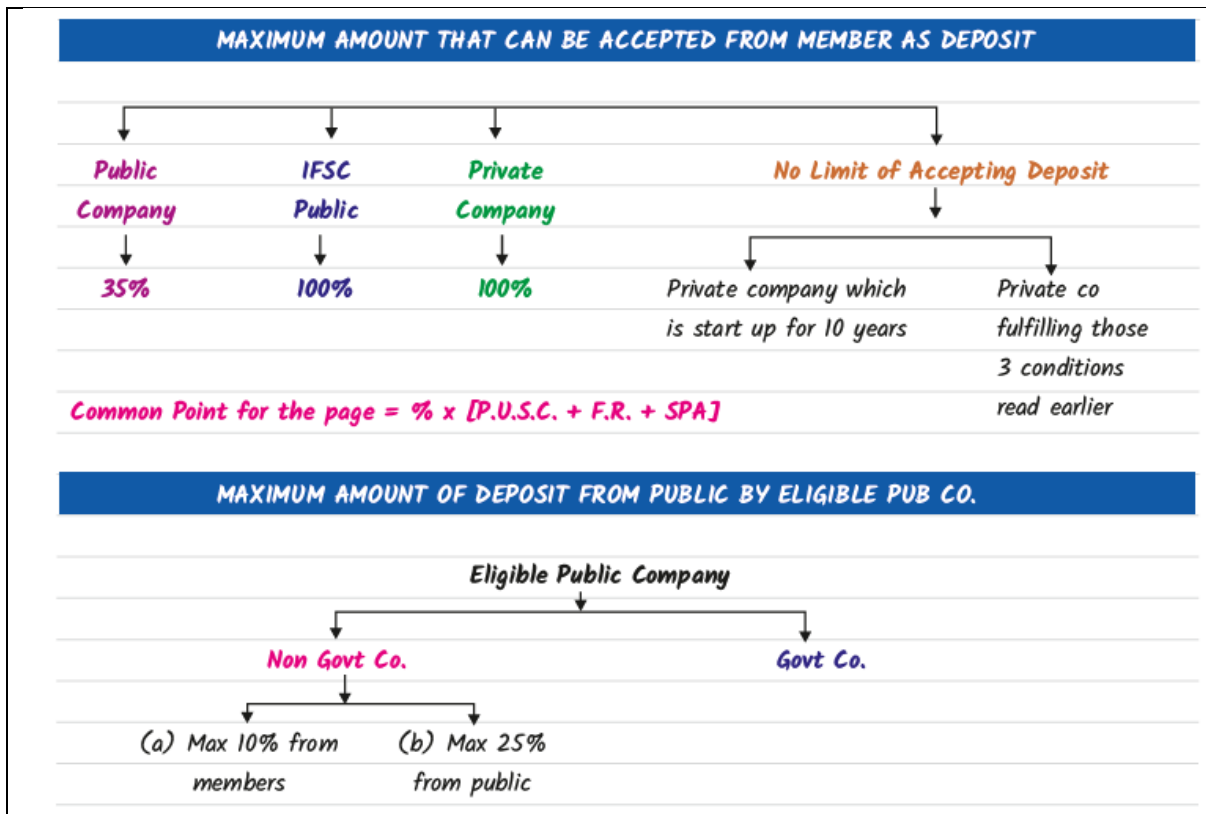 MAXIMUM AMOUNT THAT CAN BE ACCEPTED FROM MEMBER AS DEPOSIT
Public Company
IFSC Public
Private Company
No Limit of Accepting Deposit
35%
100%
100%
Private company which
is start up for 10 years
Private co
fulfilling those
3 conditions
read earlier
Common Point for the page = % x [P.U.S.C. + F.R. + SPA]
MAXIMUM AMOUNT OF DEPOSIT FROM PUBLIC BY ELIGIBLE PUB CO.
Eligible Public Company
Non Govt Co.
Govt Co.
(a) Max 10% from
members
(b) Max 25%
from public